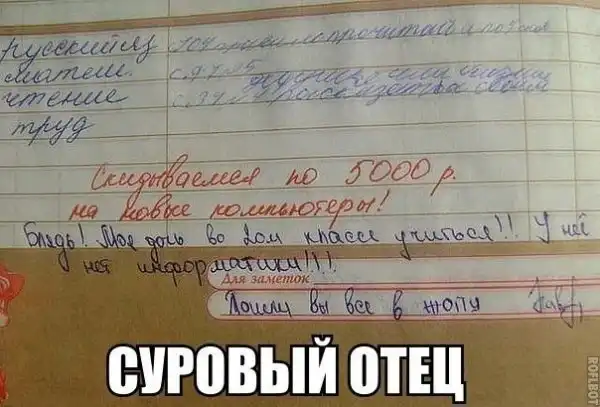 русский яз
матем. с. 97 №5
чтение с. 34
труд
Скидываемся по 5000 р.
на новые компьютеры!
Блядь! Моя дочь во 2ом классе учиться!! У неё
нет информатики!!!
Для заметок
Пошли вы все в жопу
СУРОВЫЙ ОТЕЦ
ROFLBOT